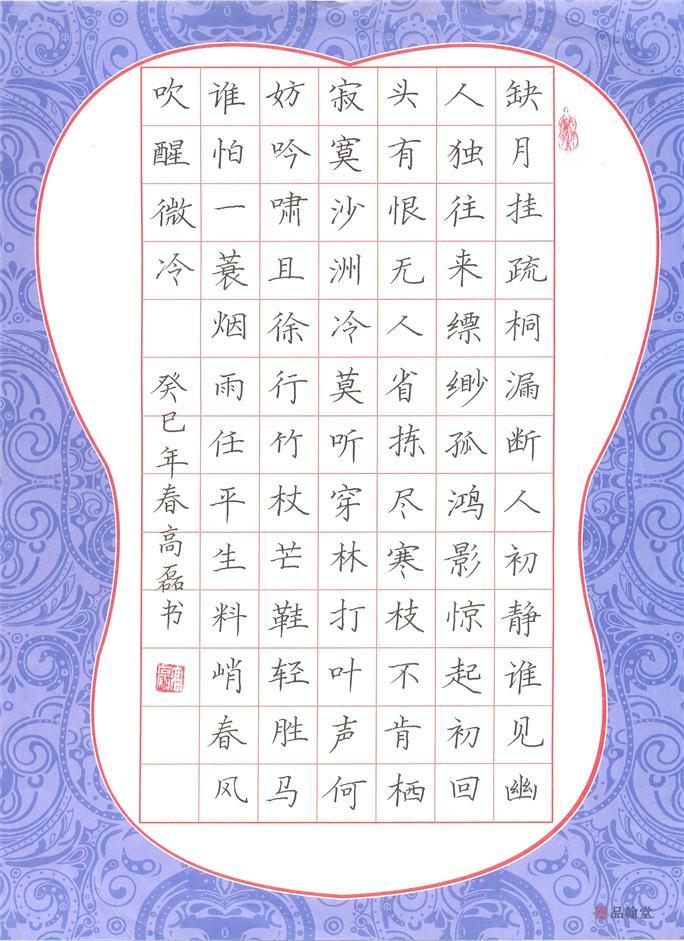 缺月挂疏桐漏断人初静谁见幽
人独往来缥缈孤鸿影惊起初回
头有恨无人省拣尽寒枝不肯栖
寂寞沙洲冷莫听穿林打叶声何
妨吟啸且徐行竹杖芒鞋轻胜马
谁怕一蓑烟雨任平生料峭春风
吹醒微冷
癸巳年春高磊书
品翰堂